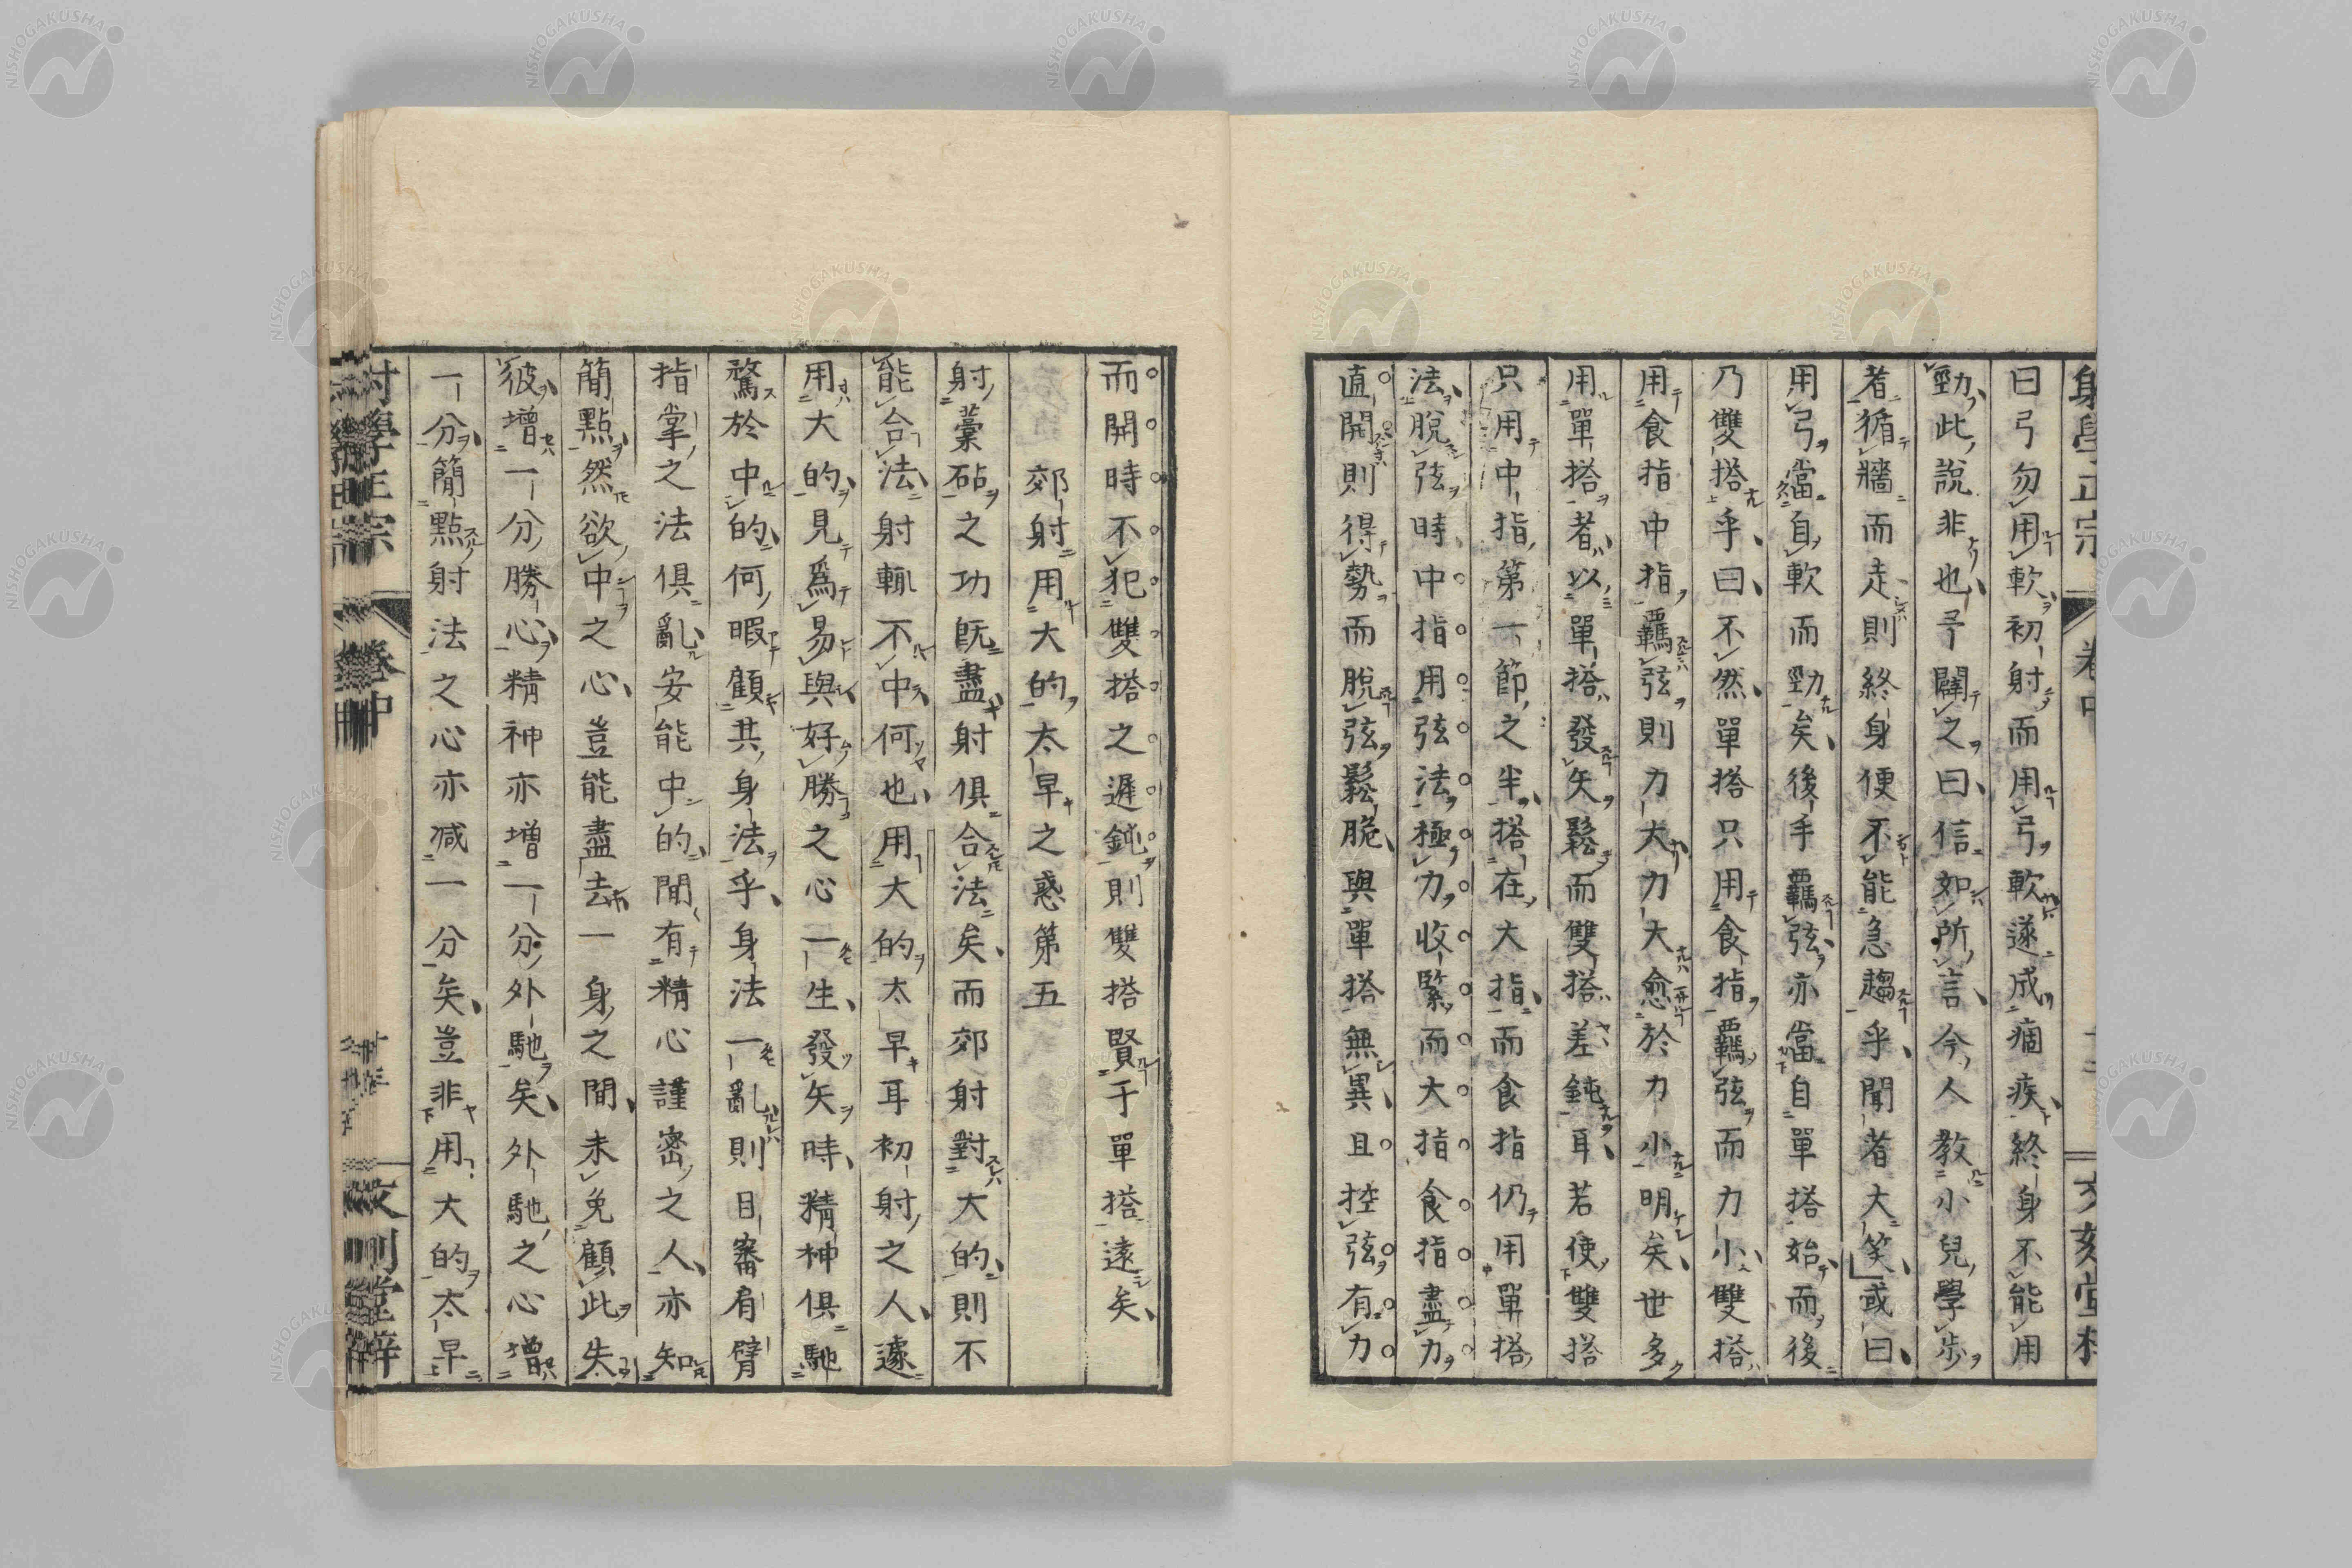 射學正宗 卷中
曰弓勿用軟初射而用弓軟遂成痼疾終身不能用
勁此說非也予闢之曰信如所言今人教小兒學步
者循牆而走則終身便不能急趨乎聞者大笑或曰
用弓當自軟而勁矣後手羈弦亦當自單搭始而後
乃雙搭乎曰不然單搭只用食指羈弦而力小雙搭
用食指中指羈弦則力大力大愈於力小明矣世多
用單搭者以單搭發矢鬆而雙搭差鈍耳若使雙搭
只用中指第一節之半搭在大指而食指仍用單搭
法脫弦時中指用弦法極力收緊而大指食指盡力
直開則得勢而脫弦鬆脆與單搭無異且控弦有力
而開時不犯雙搭之遲鈍則雙搭賢于單搭遠矣
郊射用大的太早之惑第五
射藁砧之功既盡射俱合法矣而郊射對大的則不
能合法射輒不中何也用大的太早耳初射之人遽
用大的見爲易與好勝之心一生發矢時精神俱馳
騖於中的何暇顧其身法乎身法一亂則目審肩臂
指掌之法俱亂安能中的間有精心謹密之人亦知
簡點然欲中之心豈能盡去一身之間未免顧此失
彼增一分勝心精神亦增一分外馳矣外馳之心增
一分簡點射法之心亦減一分矣豈非用大的太早
射學正宗 卷中
NISHOGAKUSHA